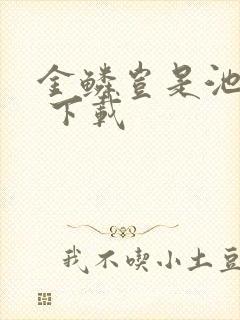 金鳞岂是池
下载
我不喫小土豆